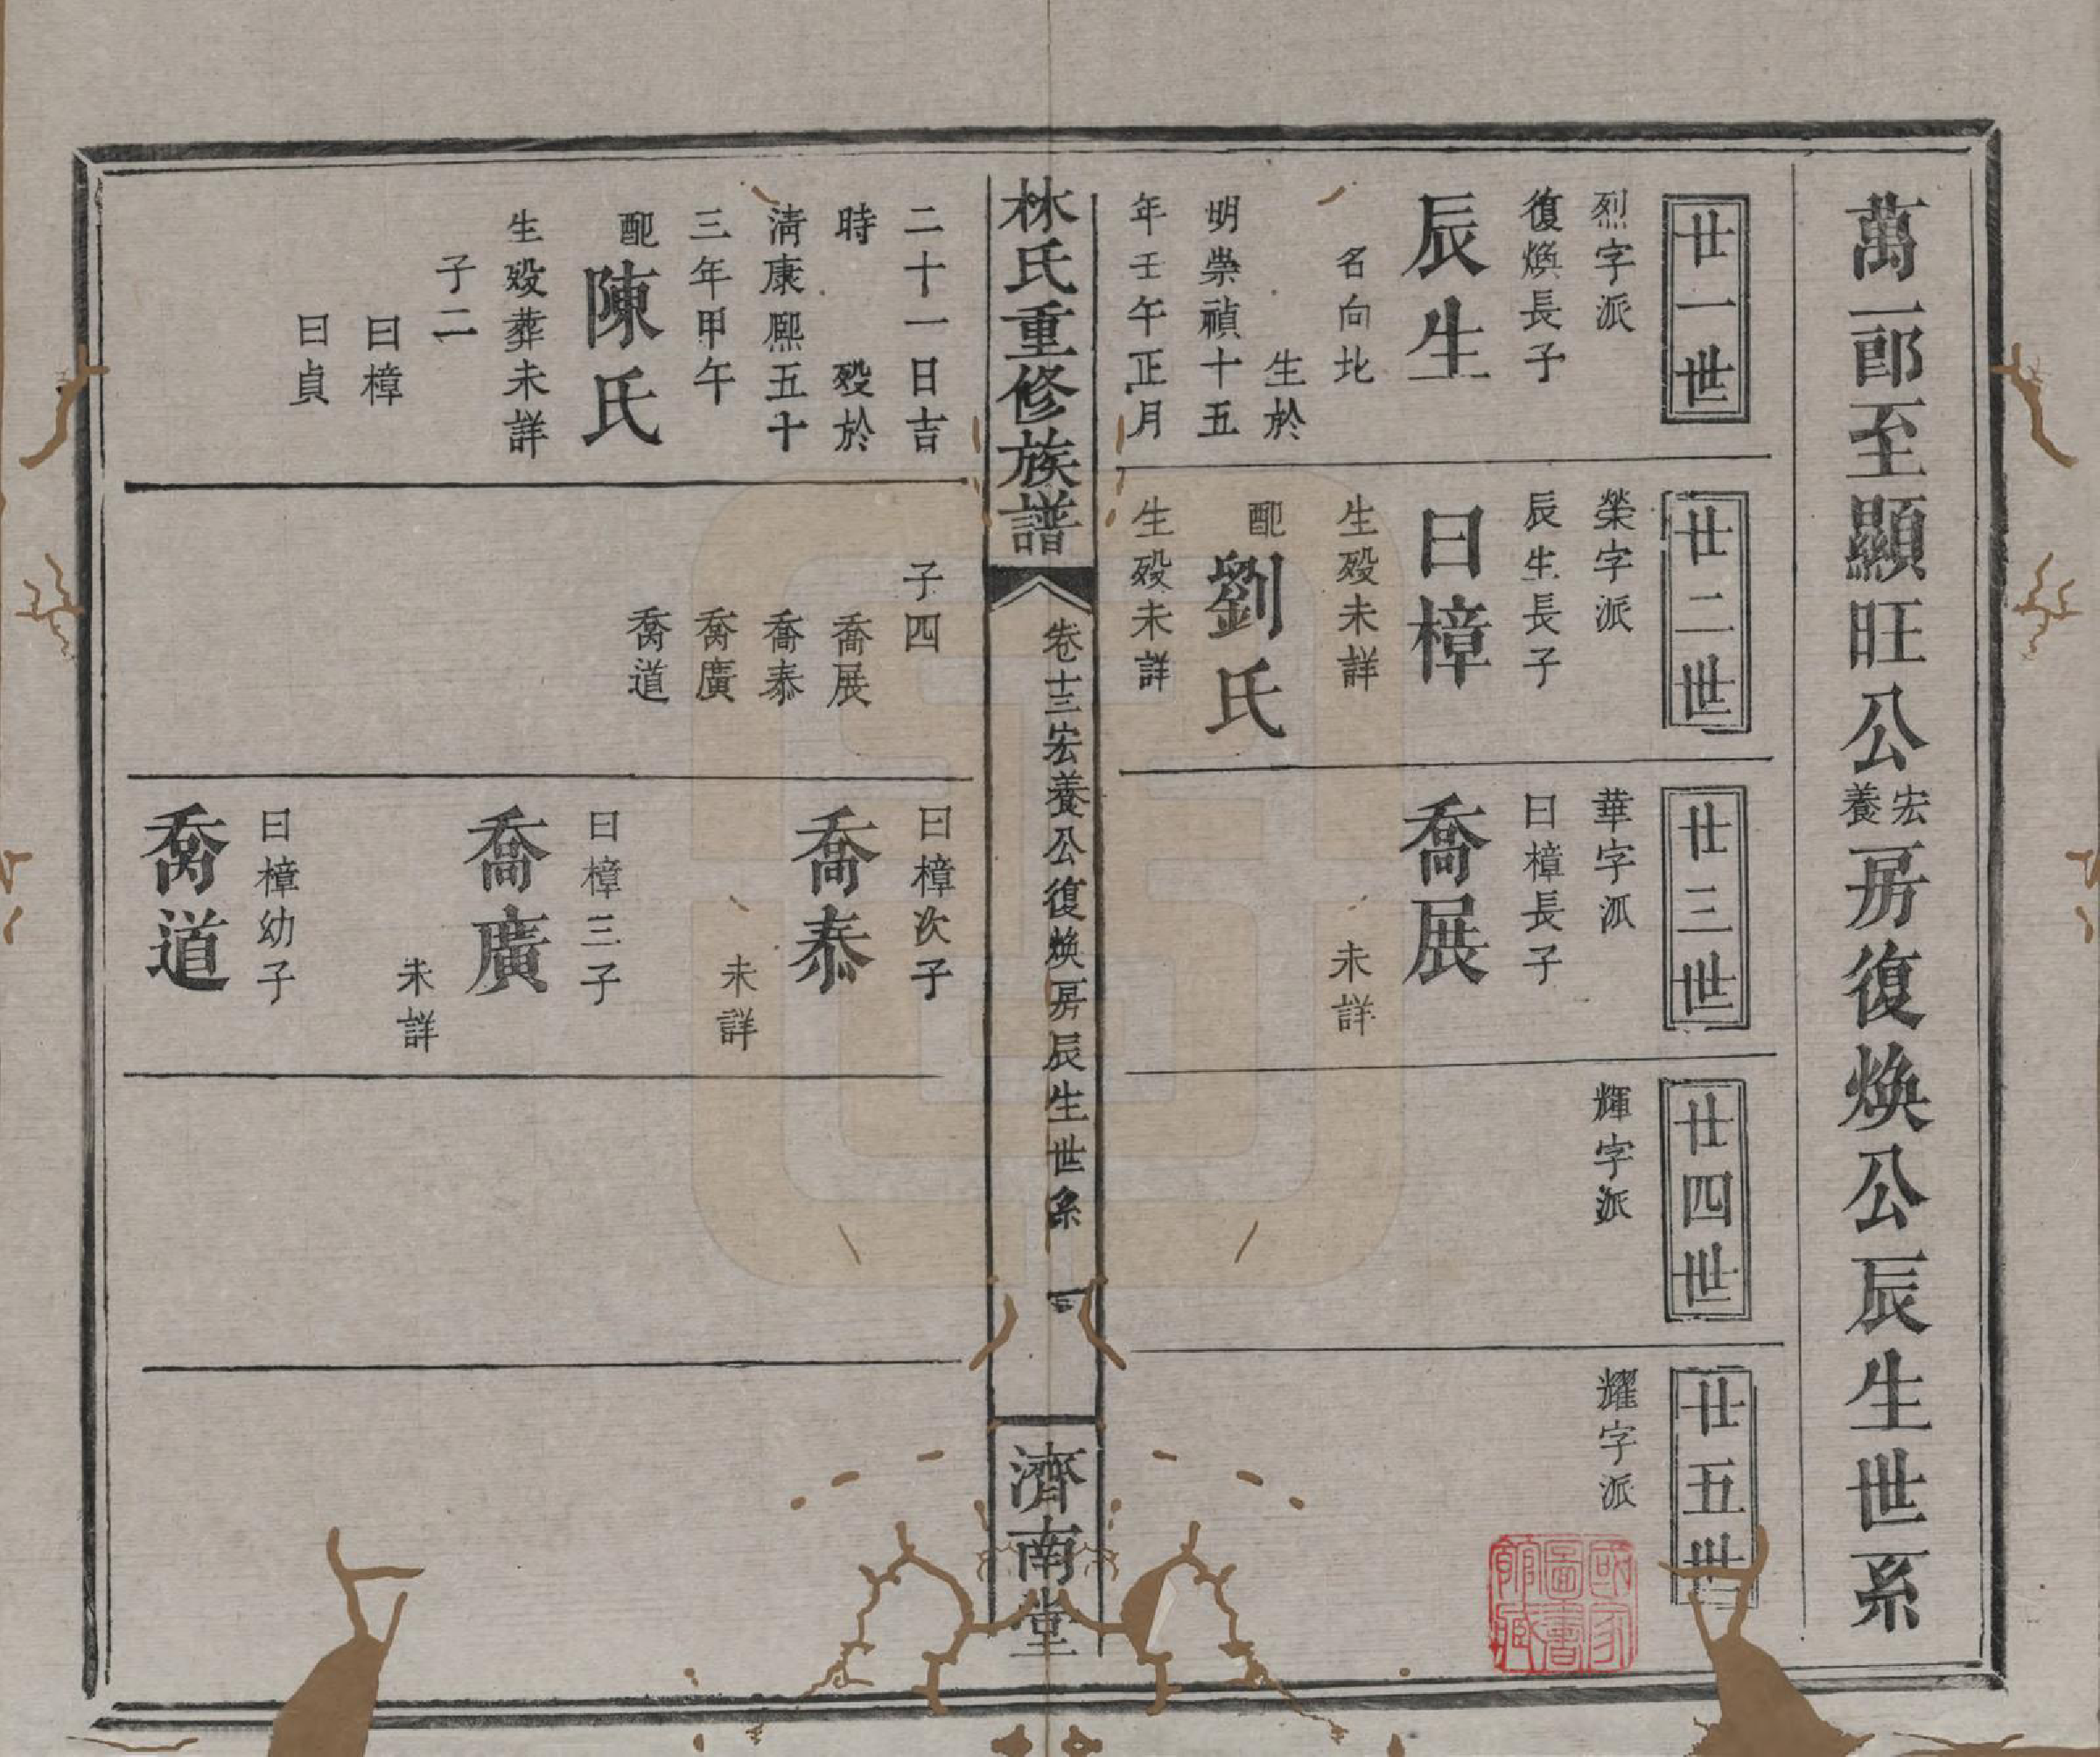 萬一郎至顯旺公宏養房復煥公辰生世系
廿一世
烈字派
復煥長子
辰生
名向北
生於
明崇禎十五
年壬午正月
廿二世
榮字派
辰生長子
曰樟
生歿未詳
配劉氏
生歿未詳
廿三世
華字派
曰樟長子
喬展
未詳
廿四世
輝字派
廿五世
耀字派
國家圖書館藏
林氏重修族譜
卷十三宏養公復煥房辰生世系
濟南堂
二十一日吉
時 歿於
清康熙五十
三年甲午
配陳氏
生歿葬未詳
子二
曰樟
曰貞
子四
喬展
喬泰
喬廣
喬道
曰樟次子
喬泰
未詳
曰樟三子
喬廣
未詳
曰樟幼子
喬道